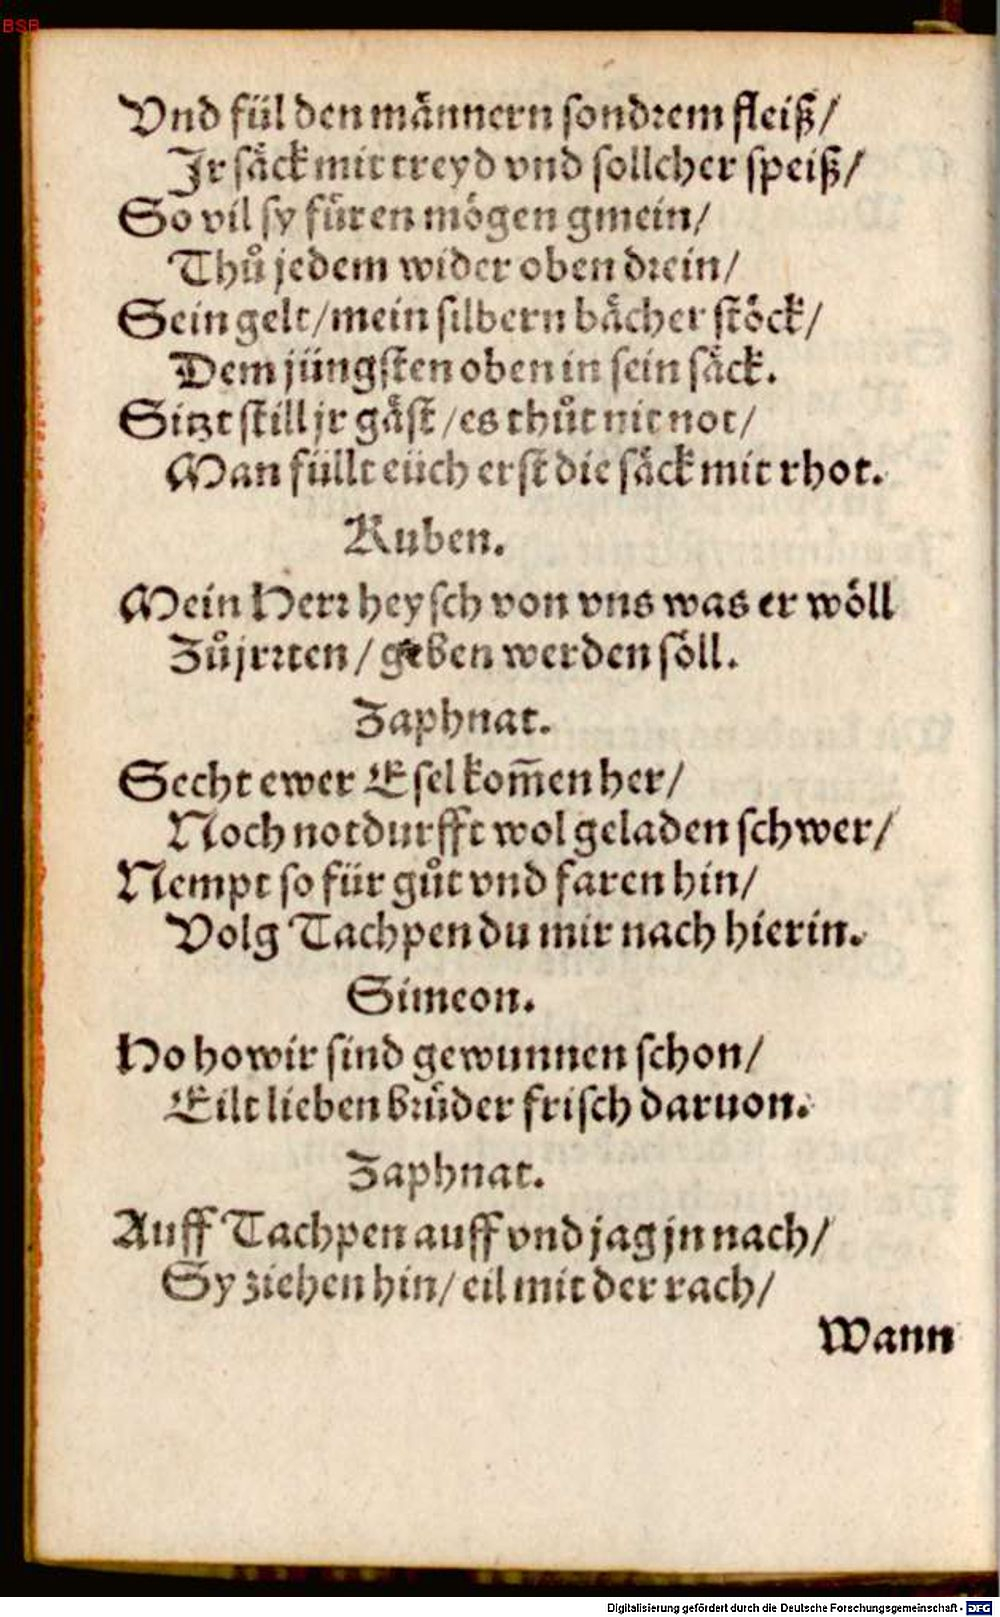 BSB
Vnd fül den mãnnern sondrem fleiß/
Jr säck mit treyd vnd sollcher speiß/
So vil sy füren mögen gmein/
Thuͦ jedem wider oben drein/
Sein gelt/mein silbern bächer stöck/
Dem jüngsten oben in sein säck.
Sitzt still jr gäst/es thuͦt nit not/
Man füllt eüch erst die säck mit rhot.
Ruben.
Mein Herr heysch von vns was er wöll
Zuͦjrrten/geben werden söll.
Zaphnat.
Secht ewer Esel kom̃en her/
Noch notdurfft wol geladen schwer/
Nempt so für guͦt vnd faren hin/
Volg Tachpen du mir nach hierin.
Simeon.
Ho ho wir sind gewunnen schon/
Eilt lieben bruͤder frisch daruon.
Zaphnat.
Auff Tachpen auff vnd jag jn nach/
Sy ziehen hin/eil mit der rach/
Wann
Digitalisierung gefördert durch die Deutsche Forschungsgemeinschaft - DFG